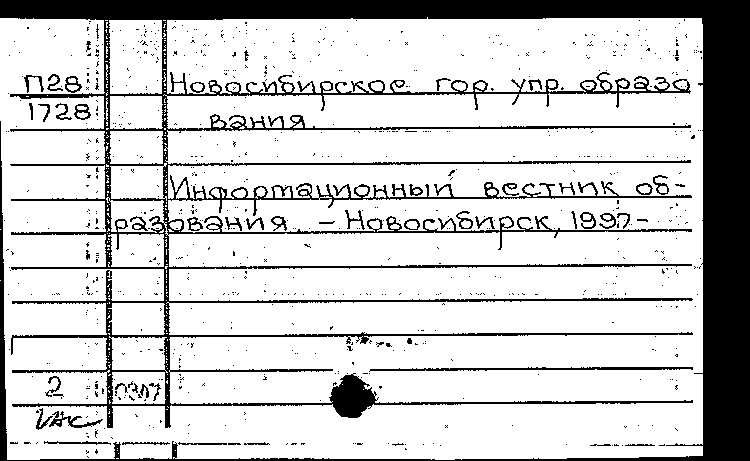 П28 Новосибирское гор. упр. образо-
1728 вания.
Информационный вестник об-
разования. – Новосибирск, 1997-
2